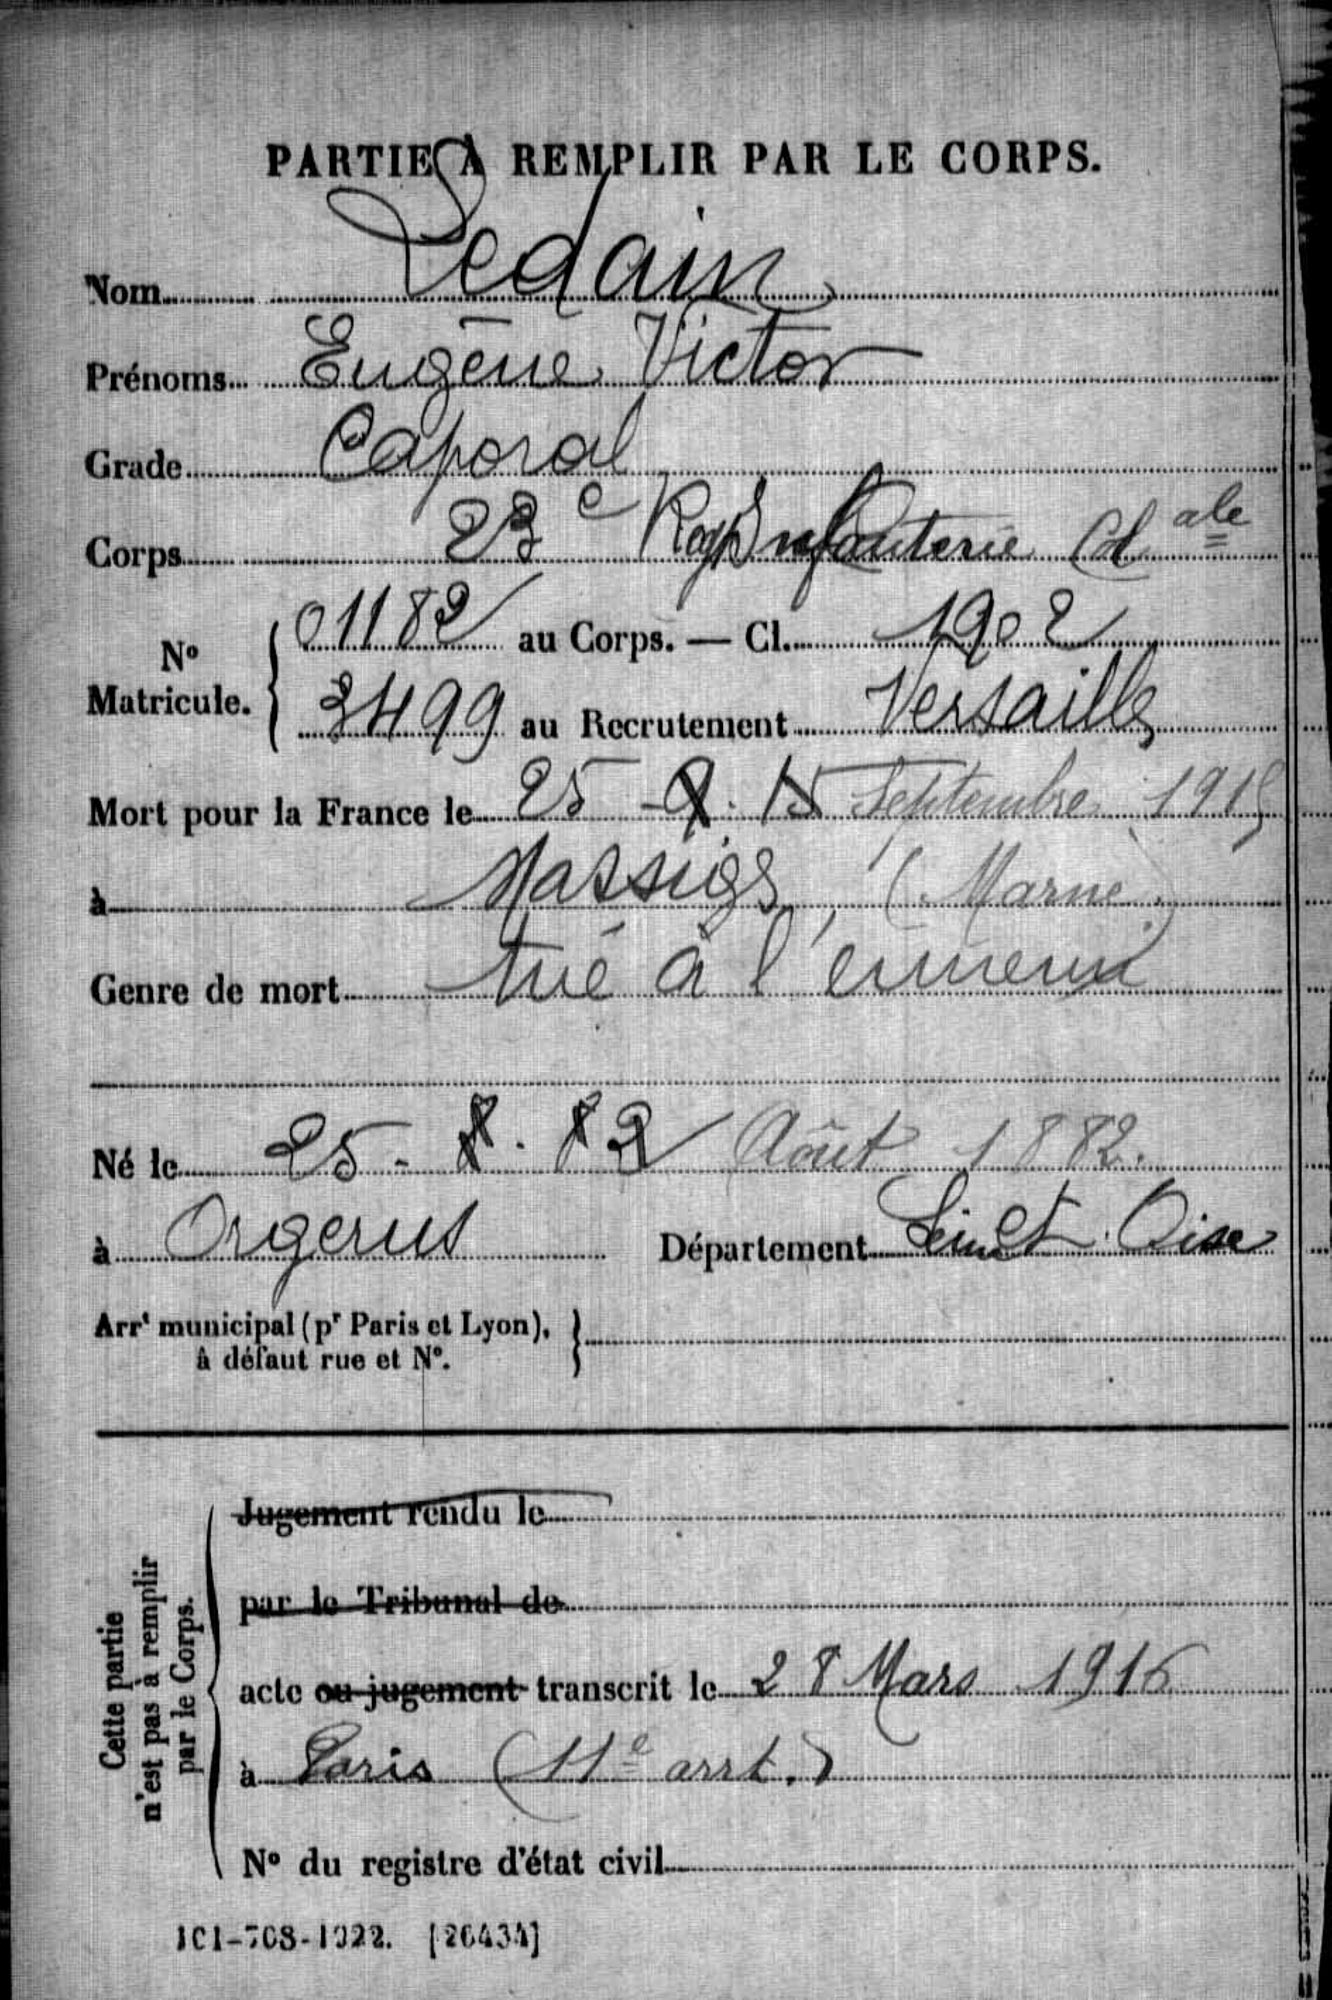 PARTIE À REMPLIR PAR LE CORPS.
Nom Ledain
Prénoms Eugène Victor
Grade Caporal
Corps 23e Rogt Infanterie Colale
No Matricule. 01182 au Corps. — Cl. 1902
3499 au Recrutement Versailles
Mort pour la France le 25 - 9. 15 Septembre 1915
à Massiges, (Marne)
Genre de mort tué à l'ennemi
Né le 25 - 8. 82 Août 1882.
à Orgerus Département Seine et Oise
Arrt municipal (pr Paris et Lyon),
à défaut rue et No.
Cette partie
n'est pas à remplir
par le Corps.
Jugement rendu le
par le Tribunal de
acte ou jugement transcrit le 28 Mars 1916
à Paris (11e arrt.)
No du registre d'état civil
101-708-1922. [26434]